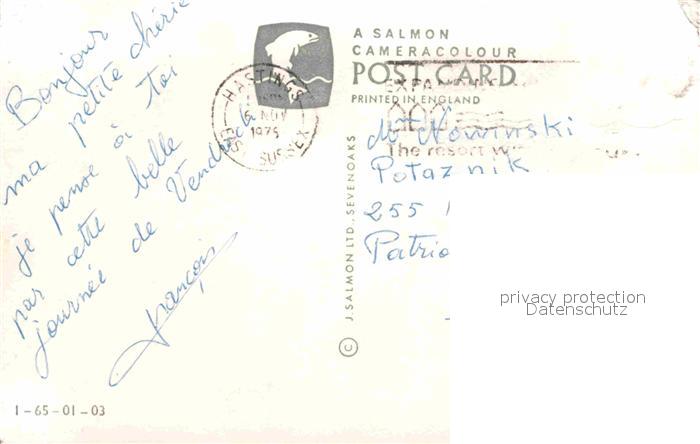 Bonjour
ma petite chérie
je pense à toi
par cette belle
journée de Vendredi
François
1-65-01-03
A SALMON
CAMERACOLOUR
POST CARD
PRINTED IN ENGLAND
HASTINGS
6 NOV
1975
SUSSEX
The resort
© J. SALMON LTD., SEVENOAKS
Nowinski
Potaznik
255
Patrio
privacy protection
Datenschutz